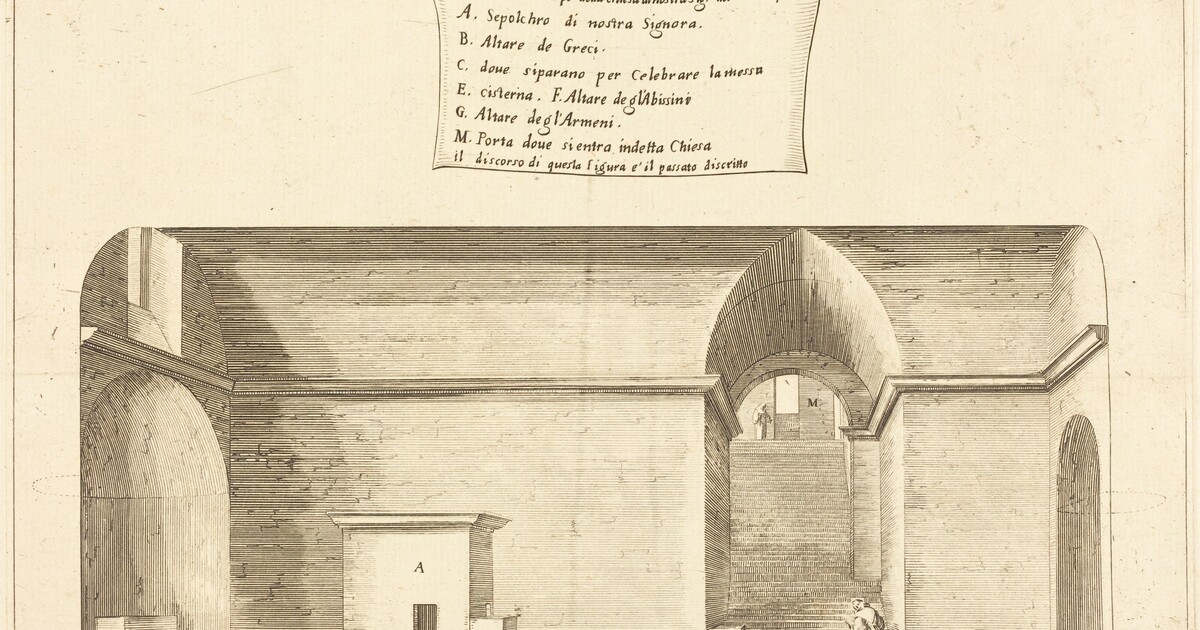 A. Sepolchro di nostra Signora.
B. Altare de Greci.
C. doue siparano per Celebrare lamessa
E. cisterna. F. Altare degl'Abissini
G. Altare degl'Armeni.
M. Porta doue sientra indetta Chiesa
il discorso di questa figura e' il passato discritto
M
A